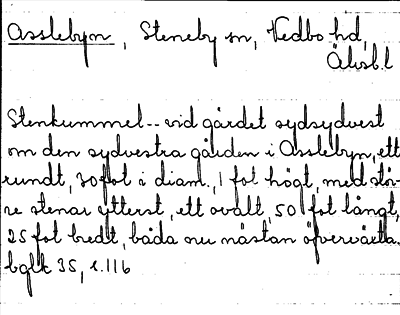 Asslebyn, Steneby sn, Vedbo hd,
Älvsb.l
Stenkummel -- vid gärdet sydsydvest
om den sydvestra gården i Asslebyn, ett
rundt, 30 fot i diam., 1 fot högt, med stör-
re stenar ytterst, ett ovalt, 50 fot långt,
25 fot bredt, båda nu nästan öfverväxta.
bglk 35, s.116